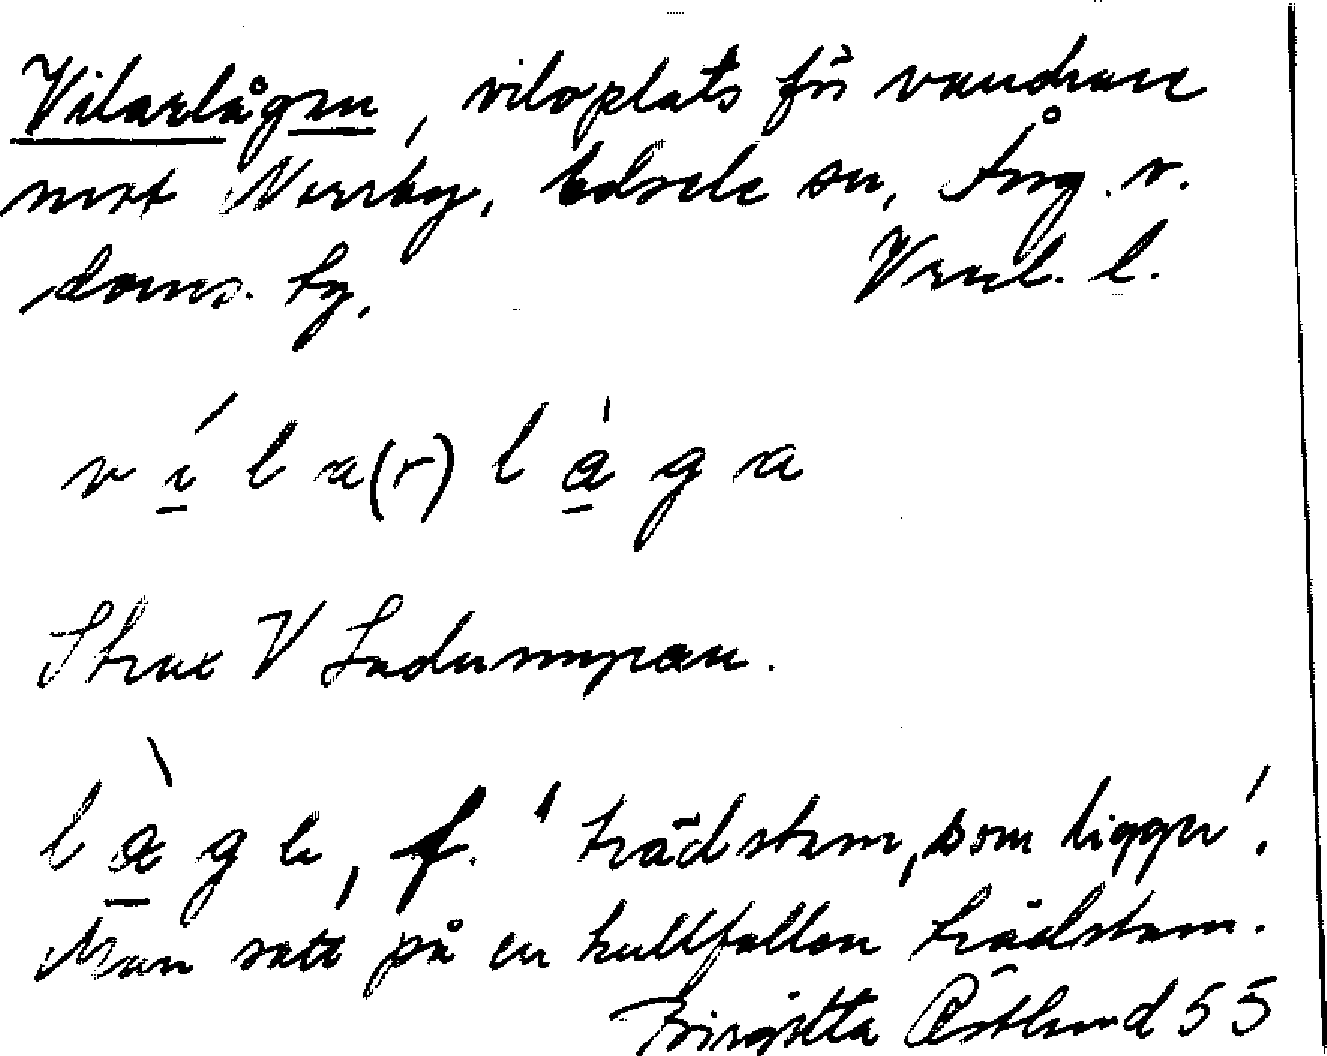 Vilarlågan, viloplats för vandrare
mot Norrby, Edsele sn, Ång. v.
doms. fg. Vrnl. l.
v í l a(r) l à g a
Strax V Ladumyran.
l à g e, f. 'trädstam, som ligger'.
Man satt på en kullfallen trädstam.
Birgitta Östlund 55